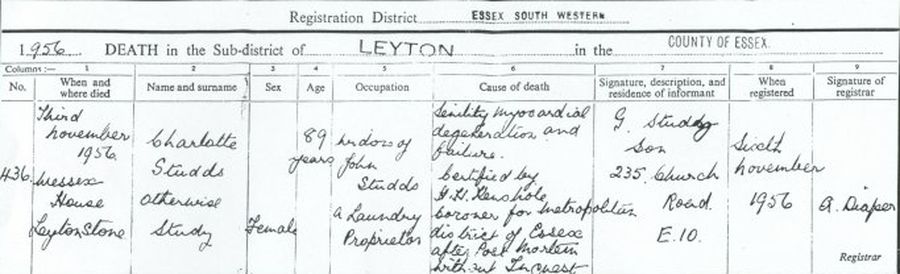 Registration District ESSEX SOUTH WESTERN
1956. DEATH in the Sub-district of LEYTON in the COUNTY OF ESSEX.
Columns :— 1 2 3 4 5 6 7 8 9
No. When and where died Name and surname Sex Age Occupation Cause of death Signature, description, and residence of informant When registered Signature of registrar
436.
Third
November
1956.
Wessex
House
Leytonstone
Charlotte
Studds
otherwise
Study
Female
89
years
Widow of
John
Studds
a Laundry
Proprietor
Senility myocardial
degeneration and
failure.
Certified by
coroner for metropolitan
district of Essex
after Post Mortem
without Inquest
G. Study
Son
235. Church
Road.
E.10.
Sixth
November
1956
A. Diaper
Registrar